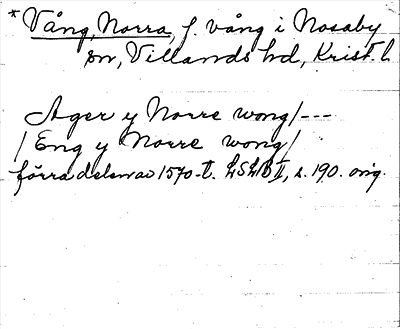 *Vång, Norra, f. vång i Nosaby
sn, Villands hd, Krist. l.
Ager y Norre wong/---
/Eng y Norre wong/
förra delen av 1570-t. LSLB II, s. 190. orig.